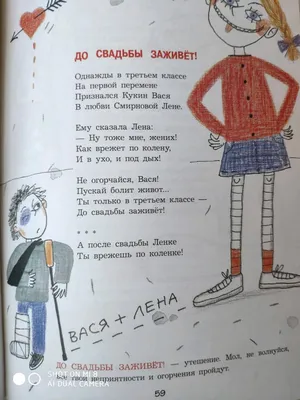 ДО СВАДЬБЫ ЗАЖИВЁТ!
Однажды в третьем классе
На первой перемене
Признался Кукин Вася
В любви Смирновой Лене.
Ему сказала Лена:
— Ну тоже мне, жених!
Как врежет по колену,
И в ухо, и под дых!
Не огорчайся, Вася!
Пускай болит живот...
Ты только в третьем классе —
До свадьбы заживёт!
* * *
А после свадьбы Ленке
Ты врежешь по коленке!
ВАСЯ + ЛЕНА
ДО СВАДЬБЫ ЗАЖИВЁТ! — утешение. Мол, не волнуйся,
все твои неприятности и огорчения пройдут.
59
SHOT ON MI 8
AI DUAL CAMERA